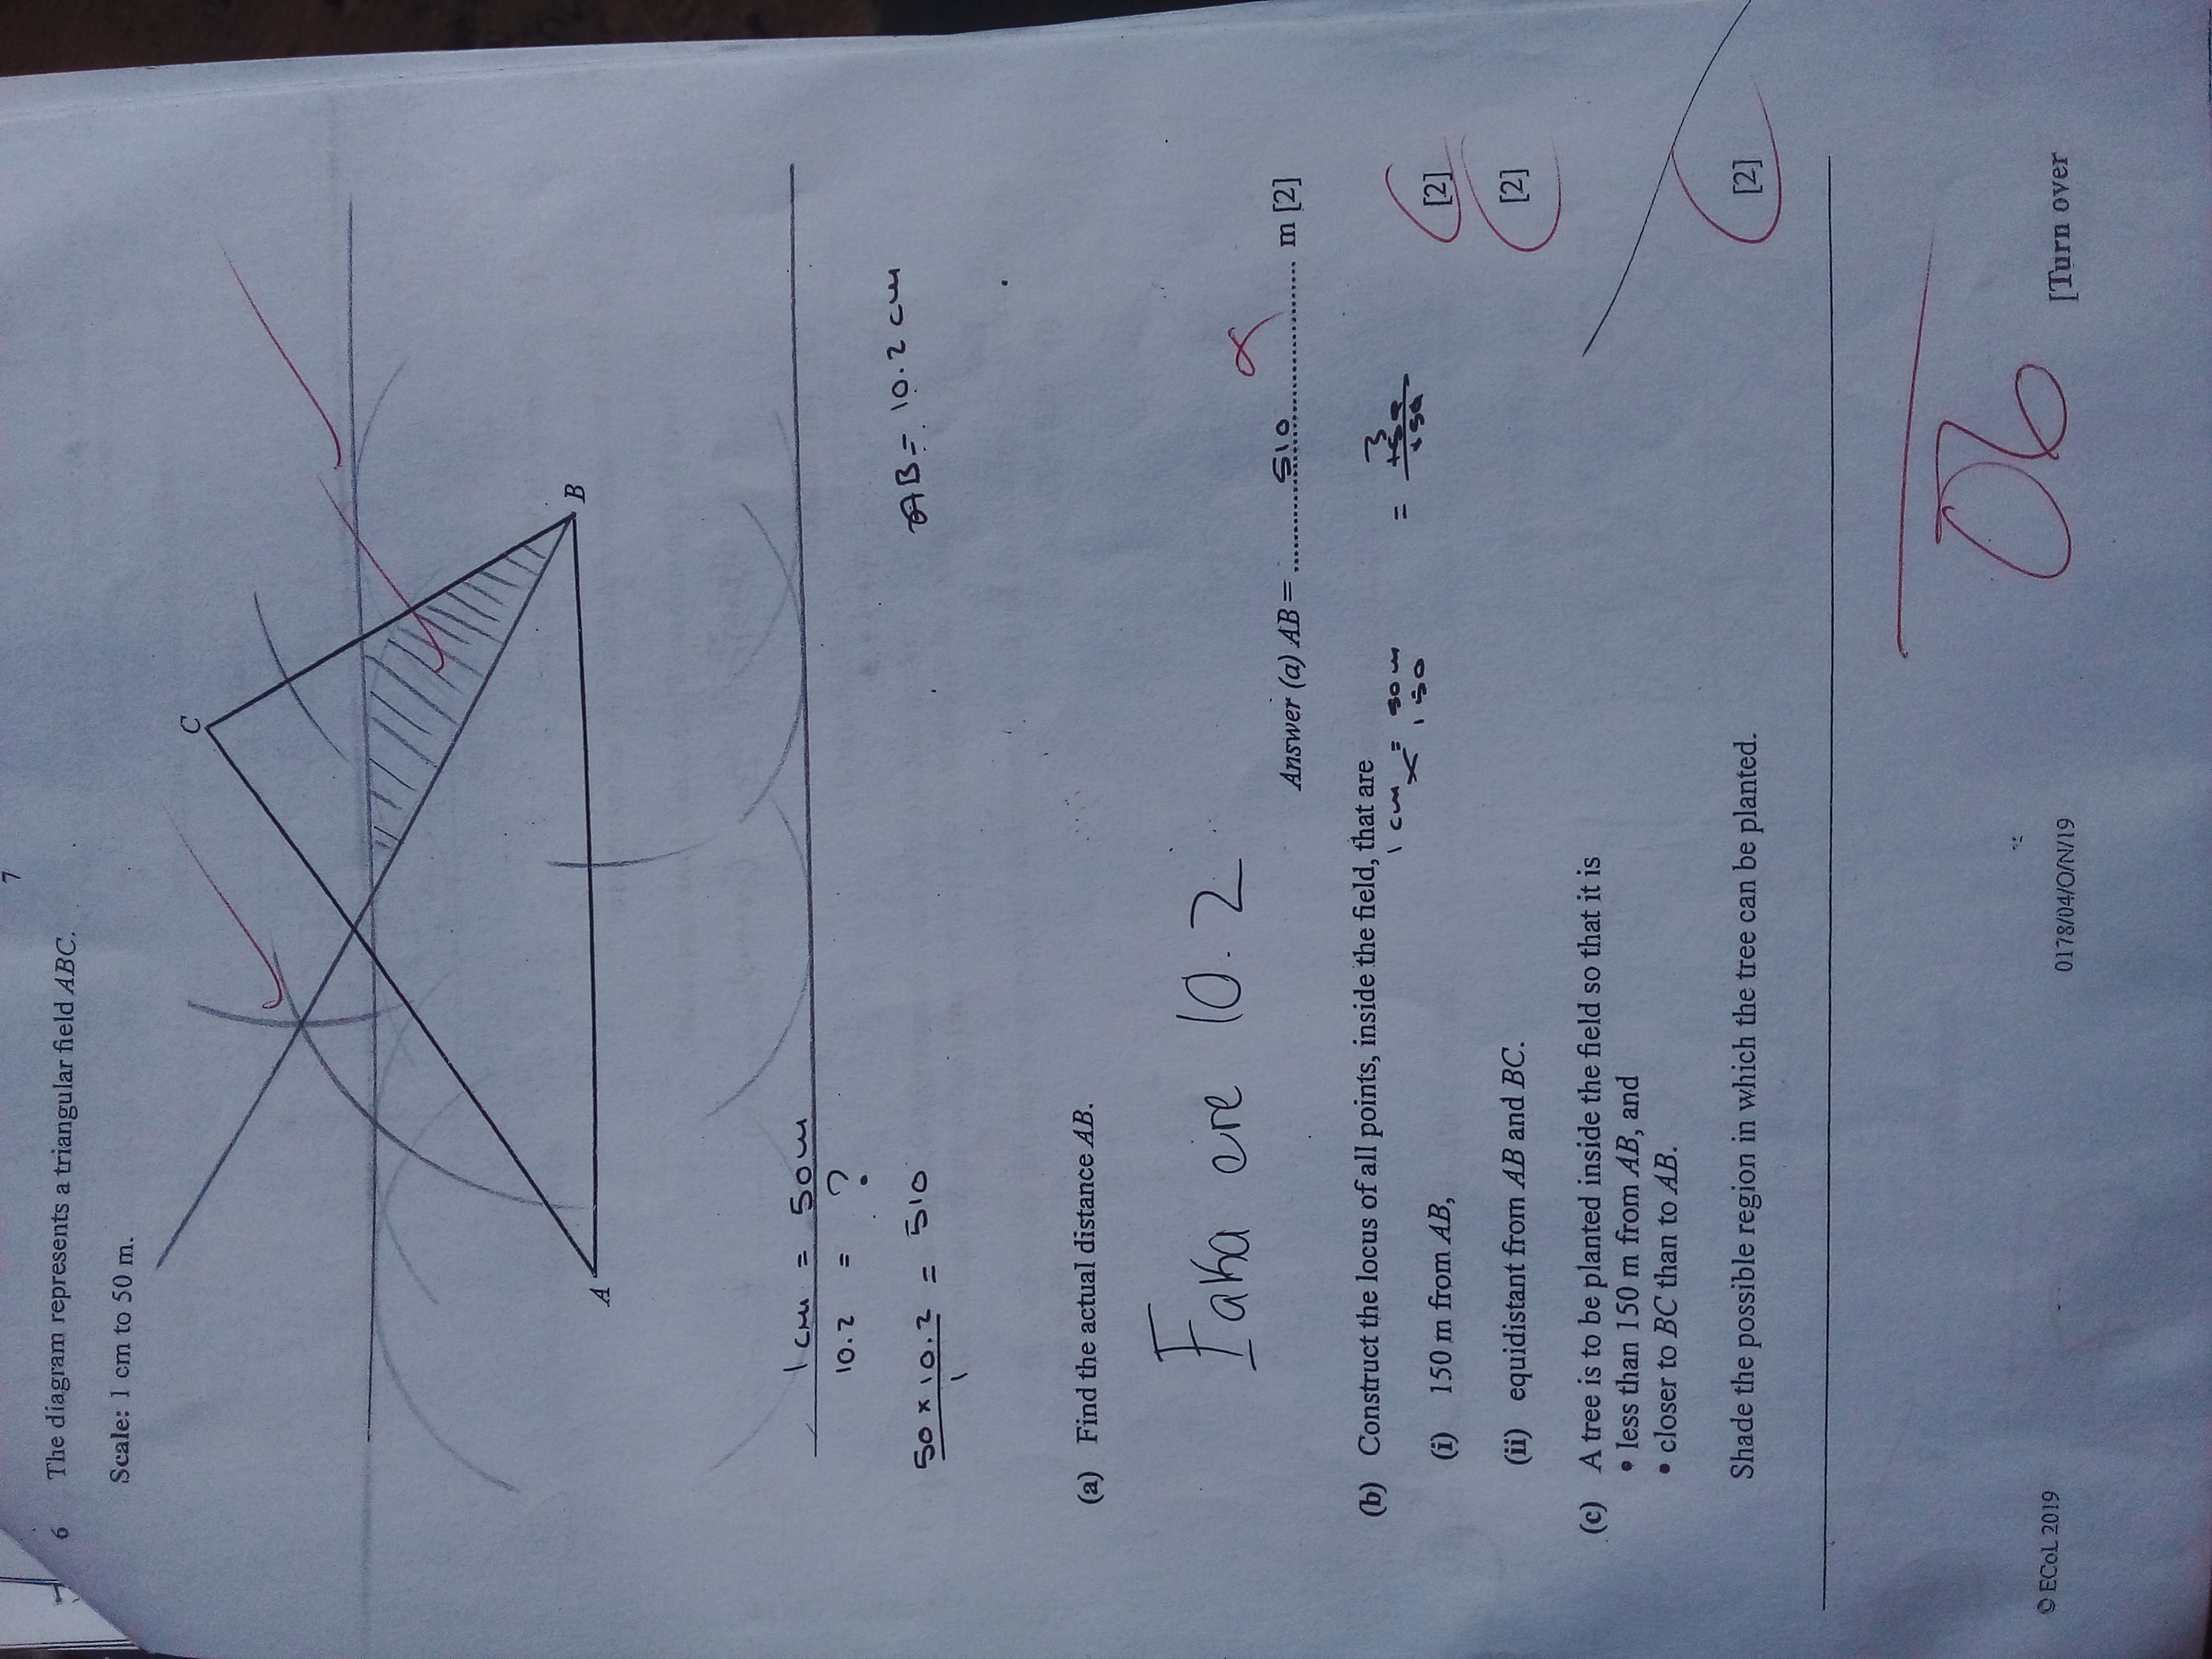 7
6 The diagram represents a triangular field ABC.
Scale: 1 cm to 50 m.
C
A
B
1 cm = 50m
10.2 = ?
50 x 10.2 = 510
1
AB = 10.2 cm
(a) Find the actual distance AB.
Faka are 10.2
Answer (a) AB = 510 m [2]
(b) Construct the locus of all points, inside the field, that are
1 cm = 50 m
150
= 3
(i) 150 m from AB, [2]
(ii) equidistant from AB and BC. [2]
(c) A tree is to be planted inside the field so that it is
• less than 150 m from AB, and
• closer to BC than to AB.
Shade the possible region in which the tree can be planted. [2]
06
© ECoL 2019
0178/04/O/N/19
[Turn over